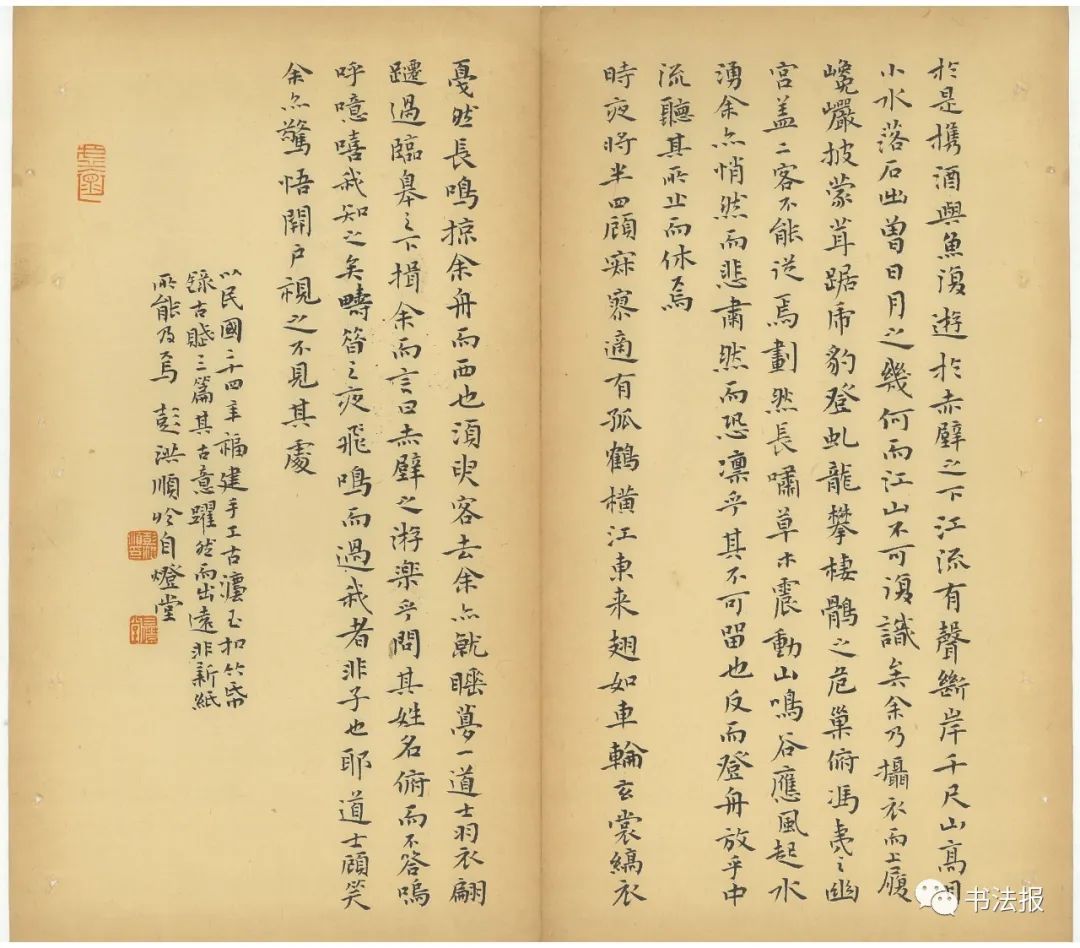 於是攜酒與魚復遊於赤壁之下江流有聲斷岸千尺山高月
小水落石出曾日月之幾何而江山不可復識矣余乃攝衣而上履
巉巖披蒙茸踞虎豹登虬龍攀棲鶻之危巢俯馮夷之幽
宮盖二客不能従焉劃然長嘯草木震動山鳴谷應風起水
湧余亦悄然而悲肅然而恐凜乎其不可留也反而登舟放乎中
流聽其所止而休焉
時夜将半四顧寂寥適有孤鶴橫江東来翅如車輪玄裳縞衣
戛然長鳴掠余舟而西也須臾客去余亦就睡夢一道士羽衣翩
躚過臨皋之下揖余而言曰赤壁之游樂乎問其姓名俯而不答嗚
呼噫嘻我知之矣疇昔之夜飛鳴而過我者非子也耶道士顧笑
余亦驚悟開户視之不見其處
以民國二十四年福建手工古法玉扣竹紙
錄古賦三篇其古意躍然而出遠非新紙
所能及焉 彭洪順於自燈堂
书法报